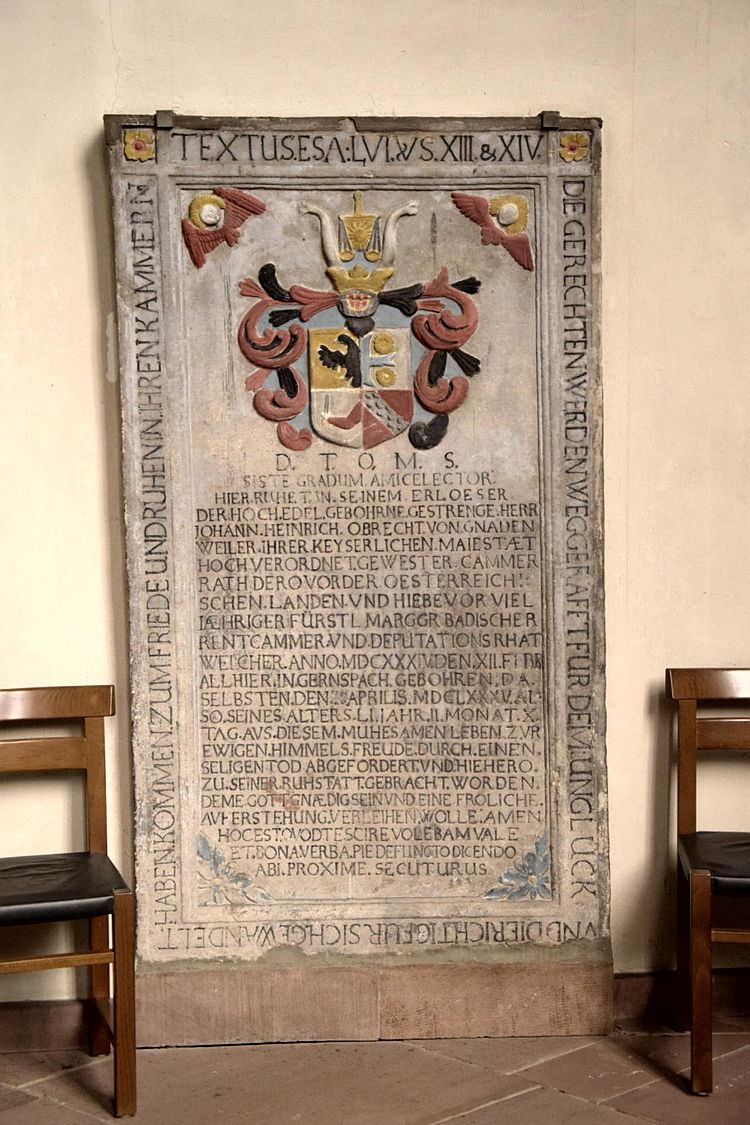 TEXTUS.ESA:LVI.VS.XIII.&XIV.
DIE GERECHTEN.WERDEN.WEGGERAFET.FUR DEM.UNGLÜCK.
VND.DIE.RICHTIG.FUR SICH.GEWANDELT
HABEN.KOMMEN.ZUM.FRIEDE.UND.RUHEN.IN.IHREN.KAMMERN
D. T. O. M. S.
SISTE GRADUM AMICE LECTOR
HIER.RUHET.IN.SEINEM.ERLOESER
DER.HOCH.EDEL.GEBOHRNE.GESTRENGE.HERR
JOHANN.HEINRICH.OBRECHT.VON.GNADEN
WEILER.IHRER KEYSERLICHEN.MAIESTÆT
HOCH VERORDNET.GEWESTER.CAMMER
RATH DERO VORDER OESTERREICHI:
SCHEN.LANDEN.VND HIEBEVOR VIEL
JÆHRIGER FÜRSTL.MARGGR BADISCHER
RENTCAMMER.VND.DEPUTATIONS RHAT
WELCHER.ANNO.MDCXXXIV.DEN.XII.
ALLHIER.IN.GERNSPACH.GEBOHREN,DA
SELBSTEN.DEN. APRILIS.MDCLXXXV.AL-
SO.SEINES ALTERS LI.JAHR.II.MONAT.X.
TAG.AVS.DIESEM.MUHESAMEN LEBEN.ZVR
EWIGEN.HIMMELS.FREUDE.DURCH.EINEN.
SELIGEN TOD ABGEFORDERT.VND.HIEHERO.
ZU.SEINER.RUHSTATT.GEBRACHT.WORDEN.
DEME.GOTT.GNÆDIG SEIN VND EINE FRÖLICHE.
AVFERSTEHUNG.VERLEIHEN.WOLLE.AMEN
HOC EST.QVOD TE SCIRE VOLEBAM VALE
ET.BONA VERBA.PIE DEFUNCTO DICENDO
ABI.PROXIME SECUTURUS